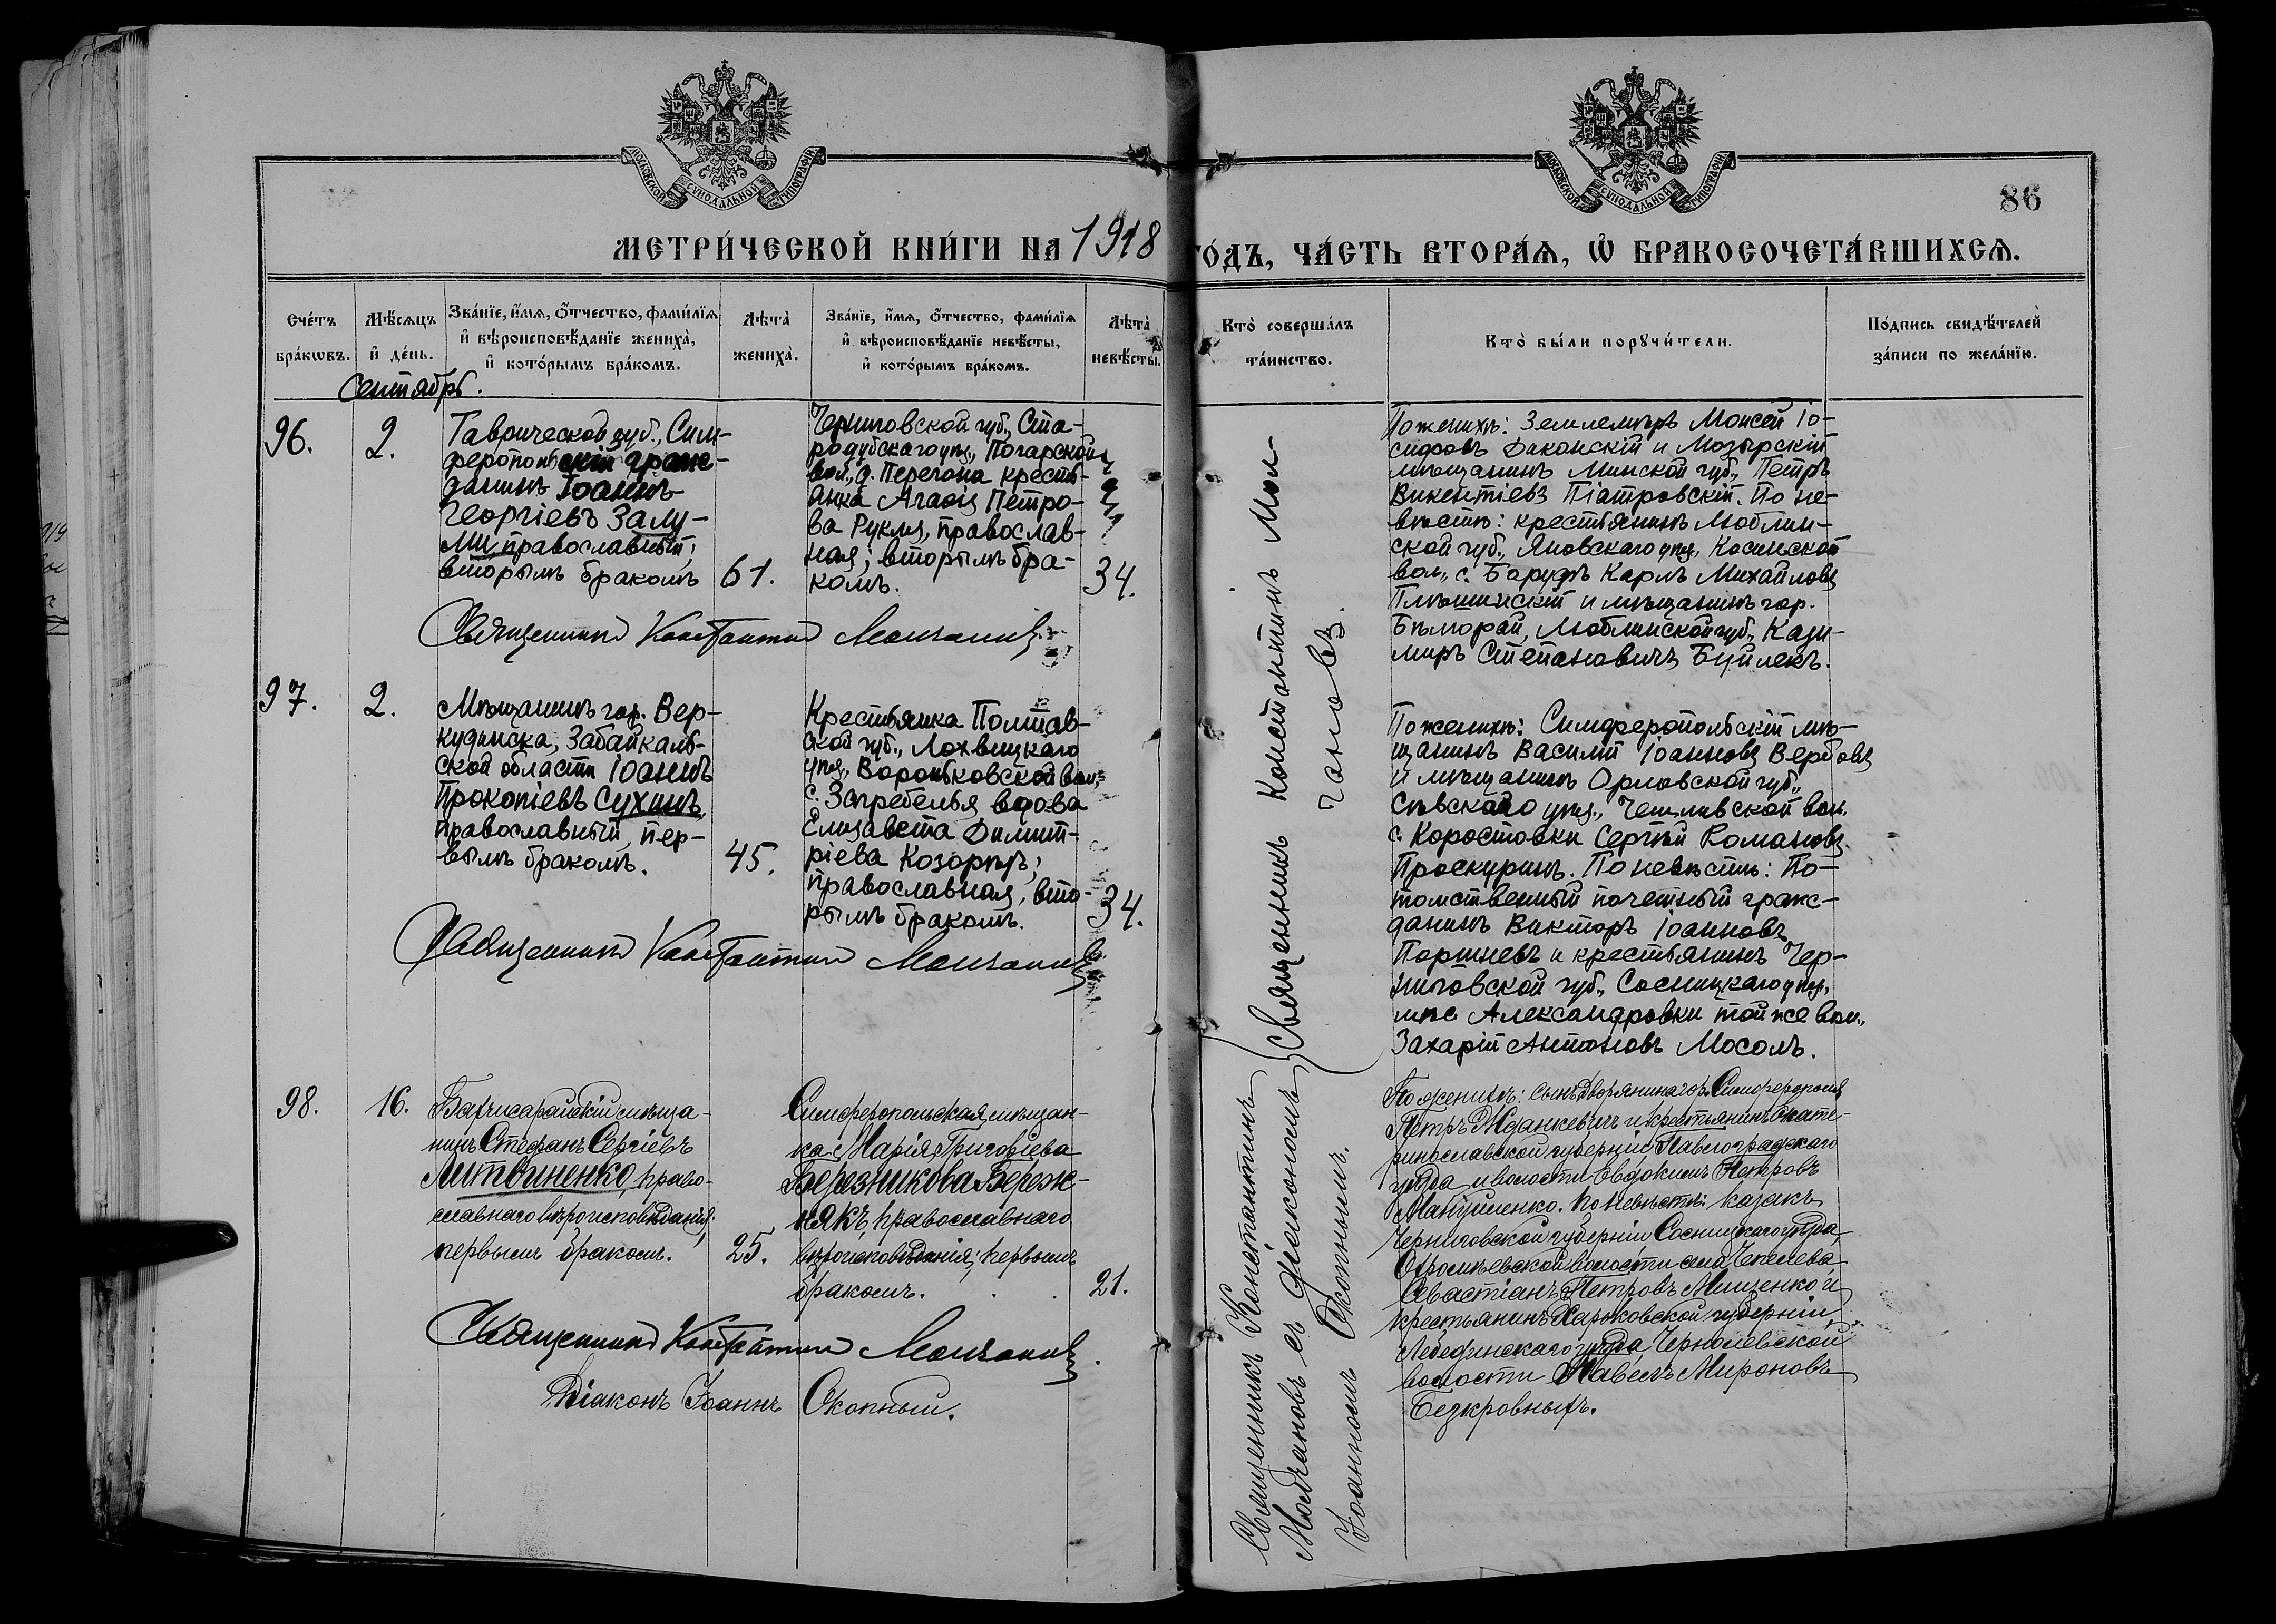 МОСКОВСКОЙ СѴНОДАЛЬНОЙ ТИПОГРАФІИ
МОСКОВСКОЙ СѴНОДАЛЬНОЙ ТИПОГРАФІИ
86
МЕТРИ́ЧЕСКОЙ КНИ́ГИ НА 1918 ГО́ДЪ, ЧА́СТЬ ВТОРА́Ѧ, Ѽ БРАКОСОЧЕТА́ВШИХСѦ.
Сче́тъ бра́кѡвъ.
Мѣ́сѧцъ и҆ де́нь.
Зва́нїе, и҆́мѧ, ѻ҆́тчество, фами́лїѧ
и҆ вѣроисповѣ́данїе жениха̀,
и҆ кото́рымъ бра́комъ.
Лѣта̀ жениха̀.
Зва́нїе, и҆́мѧ, ѻ҆́тчество, фами́лїѧ
и҆ вѣроисповѣ́данїе невѣ́сты,
и҆ кото́рымъ бра́комъ.
Лѣта̀ невѣ́сты.
Кто̀ соверша́лъ
та́инство.
Кто̀ бы́ли порꙋчи́тели.
По́дпись свидѣ́телей
за́писи по жела́нїю.
Сентябрь.
96.
2.
Таврической губ., Сим-
феропольскій граж-
данинъ Іоаннъ
Георгіевъ Залу-
ми, православный,
вторымъ бракомъ
61.
Черниговской губ., Ста-
родубскаго уѣз., Погарской
вол., д. Перегона крестья-
анка Агафія Петро-
ва Рукля, православ-
ная; вторымъ бра-
комъ.
34.
Священникъ Константинъ Молчановъ
По женихѣ: Землемѣръ Моисей Іо-
сифовъ Диконскій и Мозырскій
мѣщанинъ Минской губ., Петръ
Викентіевъ Піатровскій. По не-
вѣстѣ: крестьянинъ Люблин-
ской губ., Яновскаго уѣз., Косинской
вол., с. Баруфъ Карлъ Михайловъ
Плѣшинскій и мѣщанинъ гор.
Бѣлорай, Люблинской губ., Кази-
миръ Степановичъ Буйлекъ.
97.
2.
Мѣщанинъ гор. Вер-
кудинска, Забайкаль-
ской области Іоаннъ
Прокопіевъ Сухинъ,
православный, пер-
вымъ бракомъ.
45.
Крестьянка Полтав-
ской губ., Лохвицкаго
уѣз., Воронковской вол.,
с. Загребелья вдова
Елизавета Димит-
ріева Козорѣзъ;
православная, вто-
рымъ бракомъ.
34.
Священникъ Константинъ Молчановъ
По женихѣ: Симферопольскій мѣ-
щанинъ Василій Іоанновъ Вербовъ
и мѣщанинъ Орловской губ.,
Сѣвскаго уѣз., Чемливской вол.
с. Коростовки Сергѣй Романовъ
Проскуринъ. По невѣстѣ: По-
томственный почетный граж-
данинъ Викторъ Іоанновъ
Поршневъ и крестьянинъ Чер-
ниговской губ., Сосницкаго уѣз.,
мѣс. Александровки той же вол.,
Захарій Антоновъ Мосолъ.
Священникъ Константинъ Мол-
чановъ.
98.
16.
Бахчисарайскій мѣща-
нинъ Стефанъ Сергіевъ
Литвиненко, право-
славнаго вѣроисповѣданія;
первымъ бракомъ.
25.
Симферопольская мѣщан-
ка Марія Григоріева
Березникова Береж-
някъ, православнаго
вѣроисповѣданія; первымъ
бракомъ.
21.
Священникъ Константинъ Молчановъ.
Діаконъ Іоаннъ Окопный.
Священникъ Константинъ
Молчановъ съ діакономъ
Іоанномъ Окопнымъ.
По женихѣ: сынъ дворянина гор. Симферополя
Петръ Жданкевичъ и крестьянинъ Екате-
ринославской губерніи, Павлоградскаго
уѣзда и волости Евдокимъ Петровъ
Манушенко. По невѣстѣ: казакъ
Черниговской губерніи Сосницкаго уѣзда,
волости села Чепелева
Севастіанъ Петровъ Мищенко и
крестьянинъ Харьковской губерніи
Лебединскаго уѣзда, Черналевской
волости Павелъ Мироновъ
Безкровныхъ.